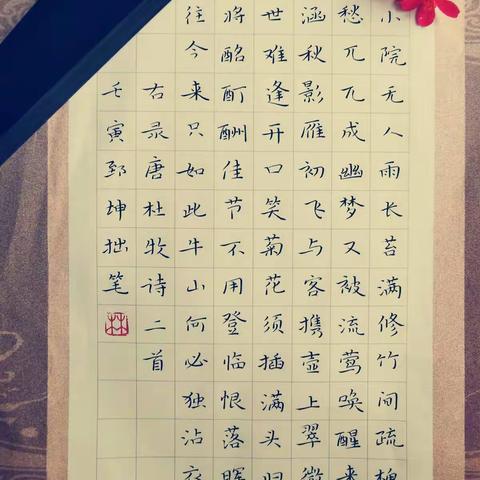 小院无人雨长苔满修竹间疏槐
愁兀兀成幽梦又被流莺唤醒来
涵秋影雁初飞与客携壶上翠微
世难逢开口笑菊花须插满头归
将酩酊酬佳节不用登临恨落晖
往今来只如此牛山何必独沾衣
右录唐杜牧诗二首
壬寅郅坤拙笔